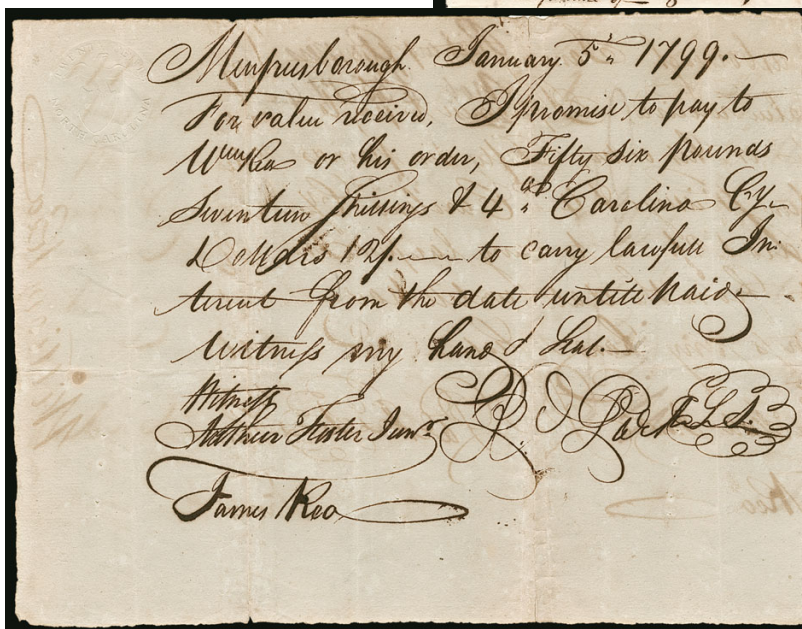 Murfreesborough January 5th 1799.
For value received, I promise to pay to
Wm Rea or his order, Fifty six pounds
Seventeen Shillings & 4d Carolina Cy
Dollars 12/. to carry lawfull In
terest from the date untill paid
Witness my hand & Seal.
Witness
Arthur Foster Junr
James Rea